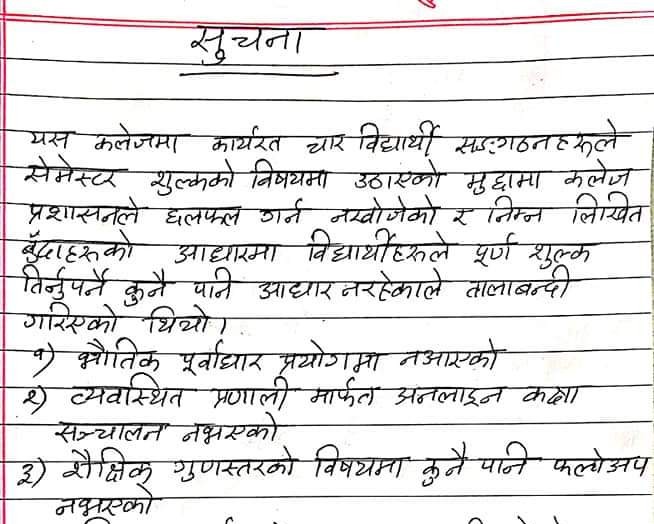 सुचना
यस कलेजमा कार्यरत चार विद्यार्थी सङ्गठनहरुले
सेमेस्टर शुल्कको विषयमा उठाएको मुद्दामा कलेज
प्रशासनले छलफल गर्न नखोजेको र निम्न लिखित
बुँदाहरुको आधारमा विद्यार्थीहरुले पूर्ण शुल्क
तिर्नुपर्ने कुनै पनि आधार नरहेकाले तालाबन्दी
गरिएको थियो।
१) भौतिक पूर्वाधार प्रयोगमा नआएको
२) व्यवस्थित प्रणाली मार्फत अनलाइन कक्षा
सञ्चालन नभएको
३) शैक्षिक गुणस्तरको विषयमा कुनै पनि फल्योअप
नभएको